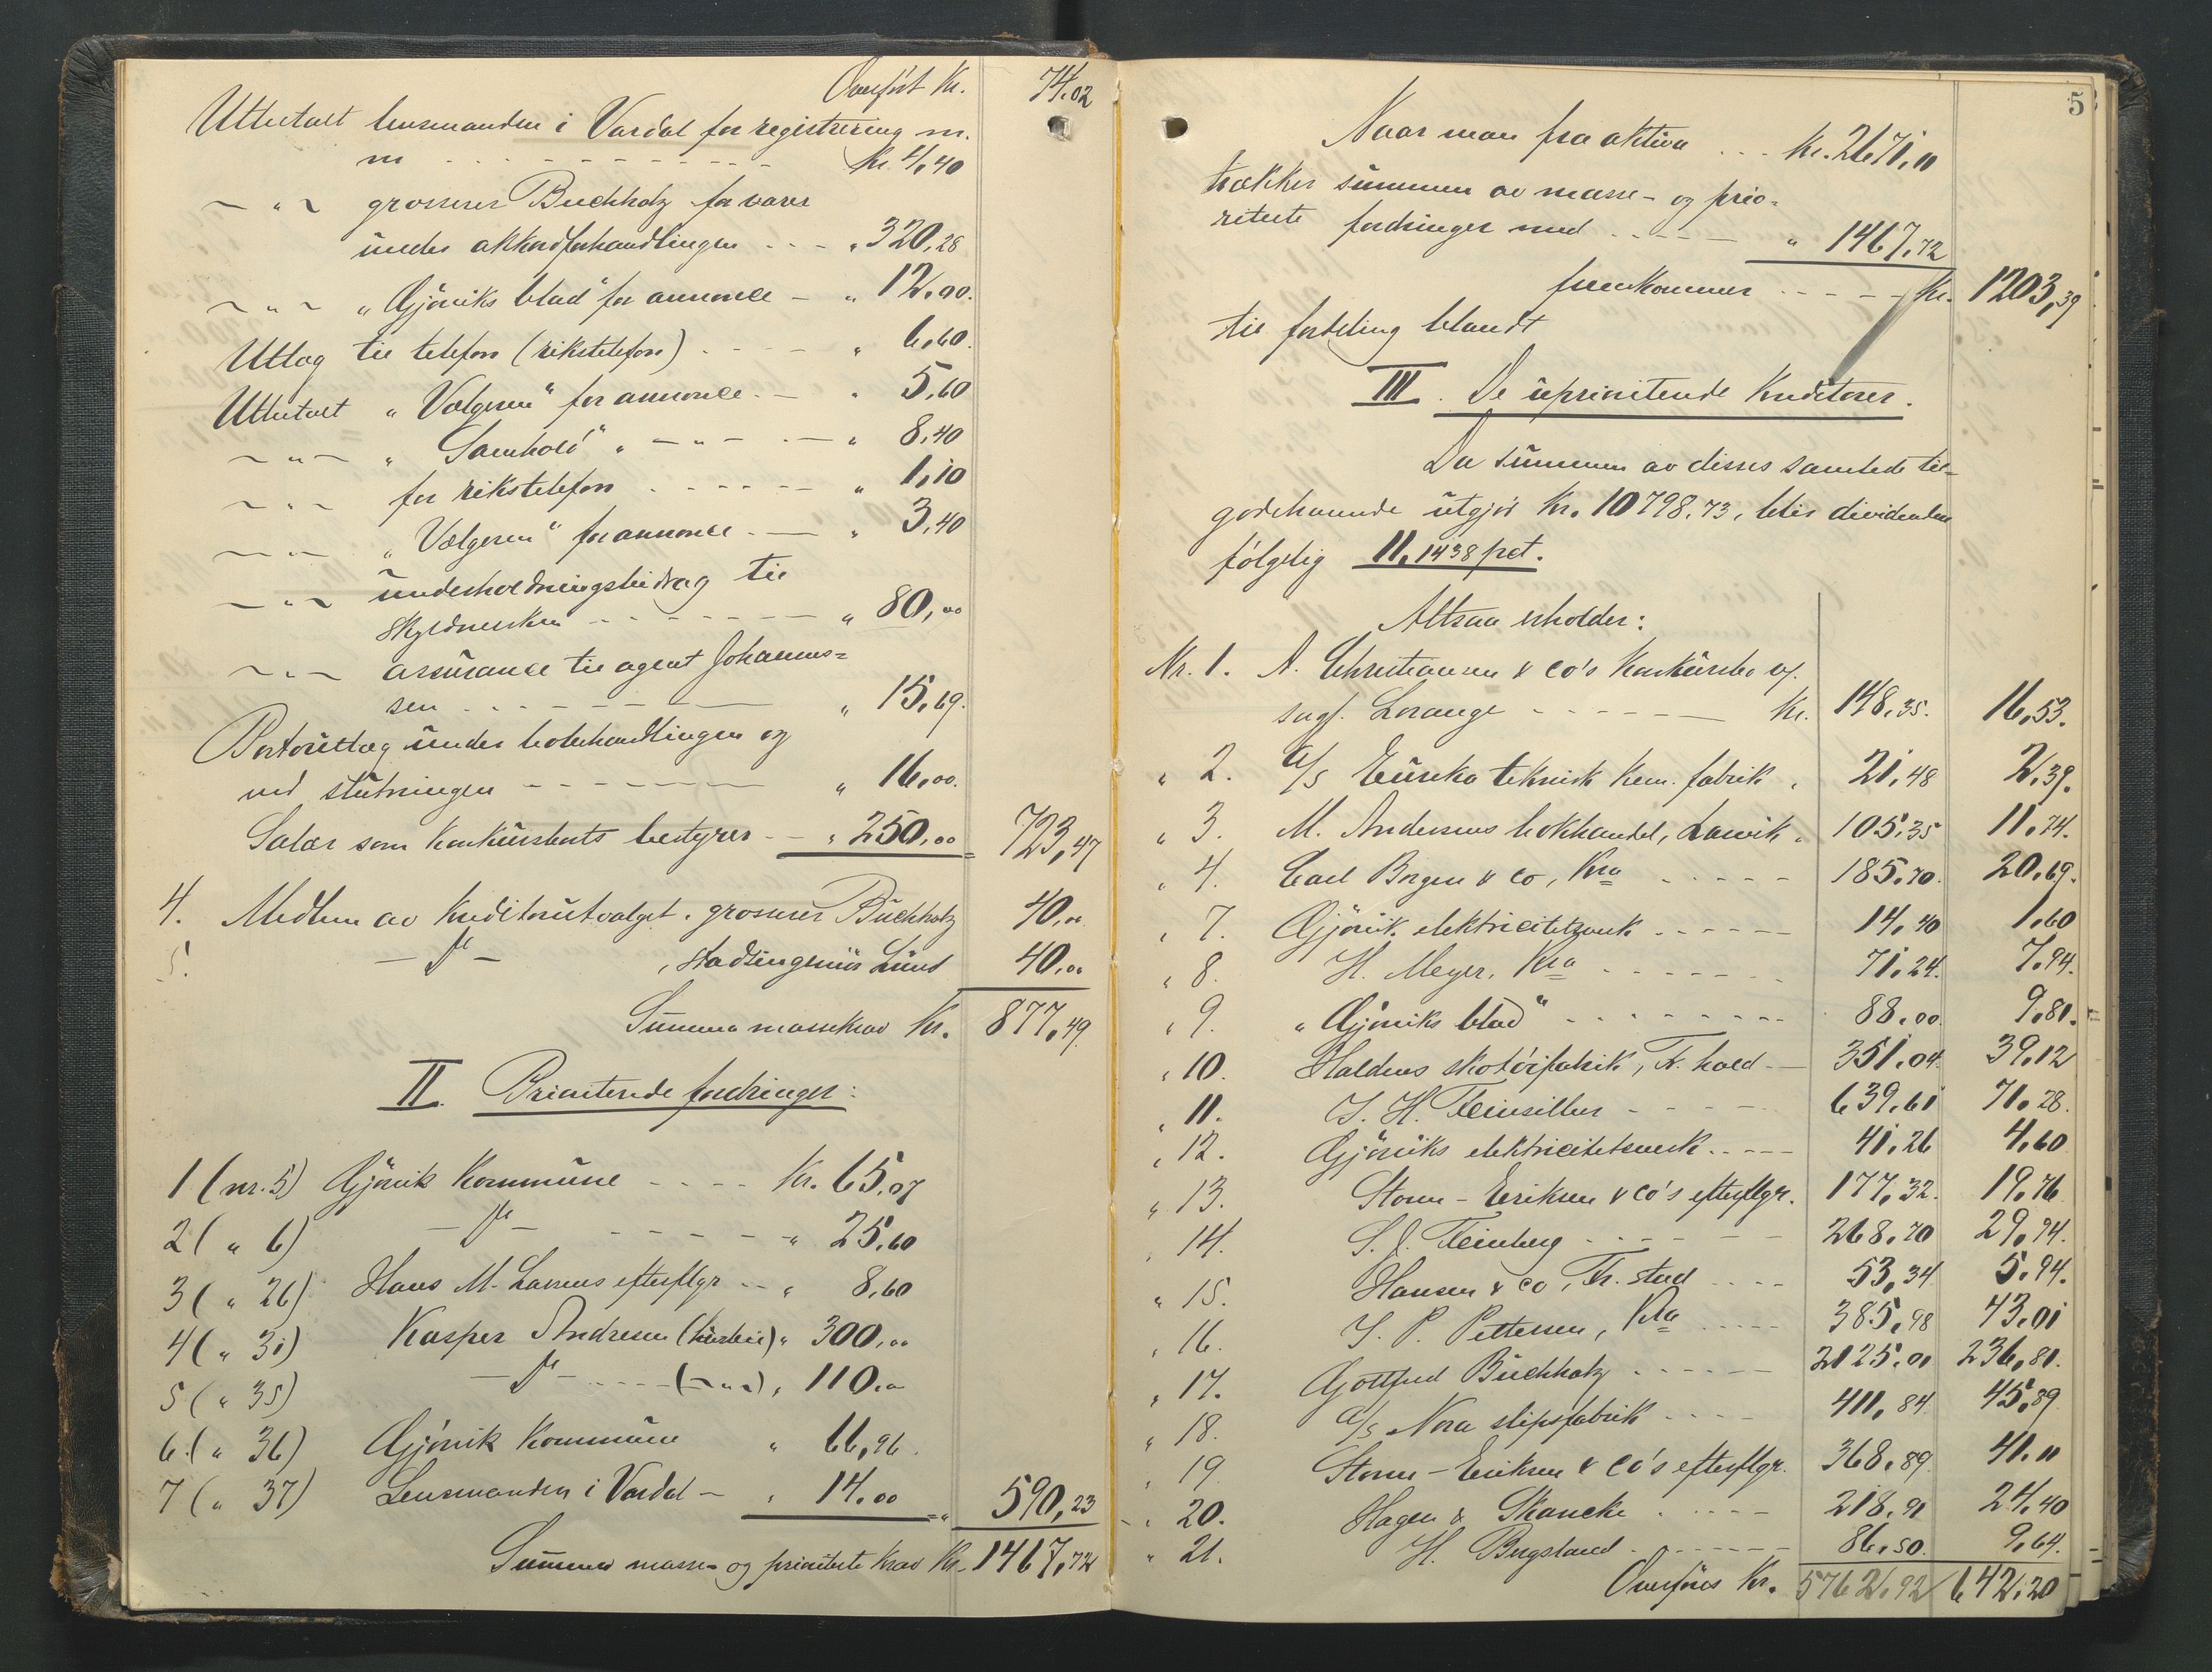 Overført Kr. 74,02
Utbetalt lensmanden i Vardal for registrering m.
m - - - Kr. 4,40
— " — grosserer Buchholz for varer
under akkordforhandlingen - - - " 320,28
— " — "Gjøviks blad" for annonce — " 12,00.
Utlæg til telefon (rikstelefon) - - " 6,60.
Utbetalt "Vælgeren" for annonce. — " 5,60
— " — "Samhold" " — " — — " 8,40
— " — for rikstelefon - - - " 1,10
— " — "Vælgeren" for annonce. — " 3,40
— " — underholdningsbidrag til
skyldnersken - - - " 80,00
— " — assurance til agent Johannes=
sen - - - " 15,69.
Portoutlæg under bobehandlingen og
ved slutningen - - - " 16,00.
Salær som konkursboets bestyrer — " 250,00 = 723,47
4. Medlem av kreditorutvalget, grosserer Buchholz 40,00
5. — do — , stadsingeniør Lund 40,00
Summa massekrav Kr. 877,49.
II. Prioriterede fordringer:
1 (nr. 5) Gjøvik kommune - - - Kr. 65,07
2 ( " 6) — do — - - - " 25,60
3 ( " 26) Hans M. Larsens efterflgr. - - " 8,60
4 ( " 31) Kasper Andresen (husleie) " 300,00
5 ( " 35) — do — - - - (— " —) " 110,00
6 ( " 36) Gjøvik kommune " 66,96.
7 ( " 37) Lensmanden i Vardal — " 14,00 = " 590,23
Summa masse- og prioriterte krav Kr. 1467,72
5
Naar man fra aktiva - - - Kr. 2671,11
trækker summen av masse- og prio=
riterte fordringer med - - - " 1467,72
fremkommer - - - Kr. 1203,39
til fordeling blandt
III. De uprioriterede kreditorer.
Da summen av disses samlede til=
godehavende utgjør Kr. 10798,73, blir dividenden
følgelig 11,1438 pct.
Altsaa erholder:
Nr. 1. A. Christiansen & Co's konkursbo v/
sagf. Lorange - - - Kr. 148,35. 16,53.
" 2. A/S Eureka teknisk kem. fabrik " 21,48 2,39.
" 3. M. Andersens bokhandel, Larvik " 105,35 11,74.
" 4. Carl Borgen & Co, Kra - - - 185,70. 20,69.
" 7. Gjøvik elektricitetsverk - - - 14,40 1,60
" 8. H. Meyer, Kra - - - 71,24. 7,94.
" 9. "Gjøviks blad" - - - 88,00 9,81.
" 10. Haldens skotøifabrik, Fr. hald — 351,04. 39,12
" 11. S. H. Feinsilber - - - 639,61 71,28.
" 12. Gjøviks elektricitetsverk - - - 41,26 4,60
" 13. Storm-Eriksen & Co's efterflgr. 177,32. 19,76
" 14. S. J. Feinberg - - - 268,70 29,94.
" 15. Hansen & Co, Fr. stad - - - 53,34 5,94.
" 16. J. P. Pettersen, Kra - - - 385,98 43,01
" 17. Gottfred Buchholz - - - 2125,01 236,81.
" 18. A/S Nora slipsfabrik - - - 411,84 45,89
" 19. Storm-Eriksen & Co's efterflgr. 368,89 41,11
" 20. Hagen & Skancke - - - 218,91 24,40
" 21. H. Bugsland - - - 86,50. 9,64.
Overføres Kr. 5762,92 642,20